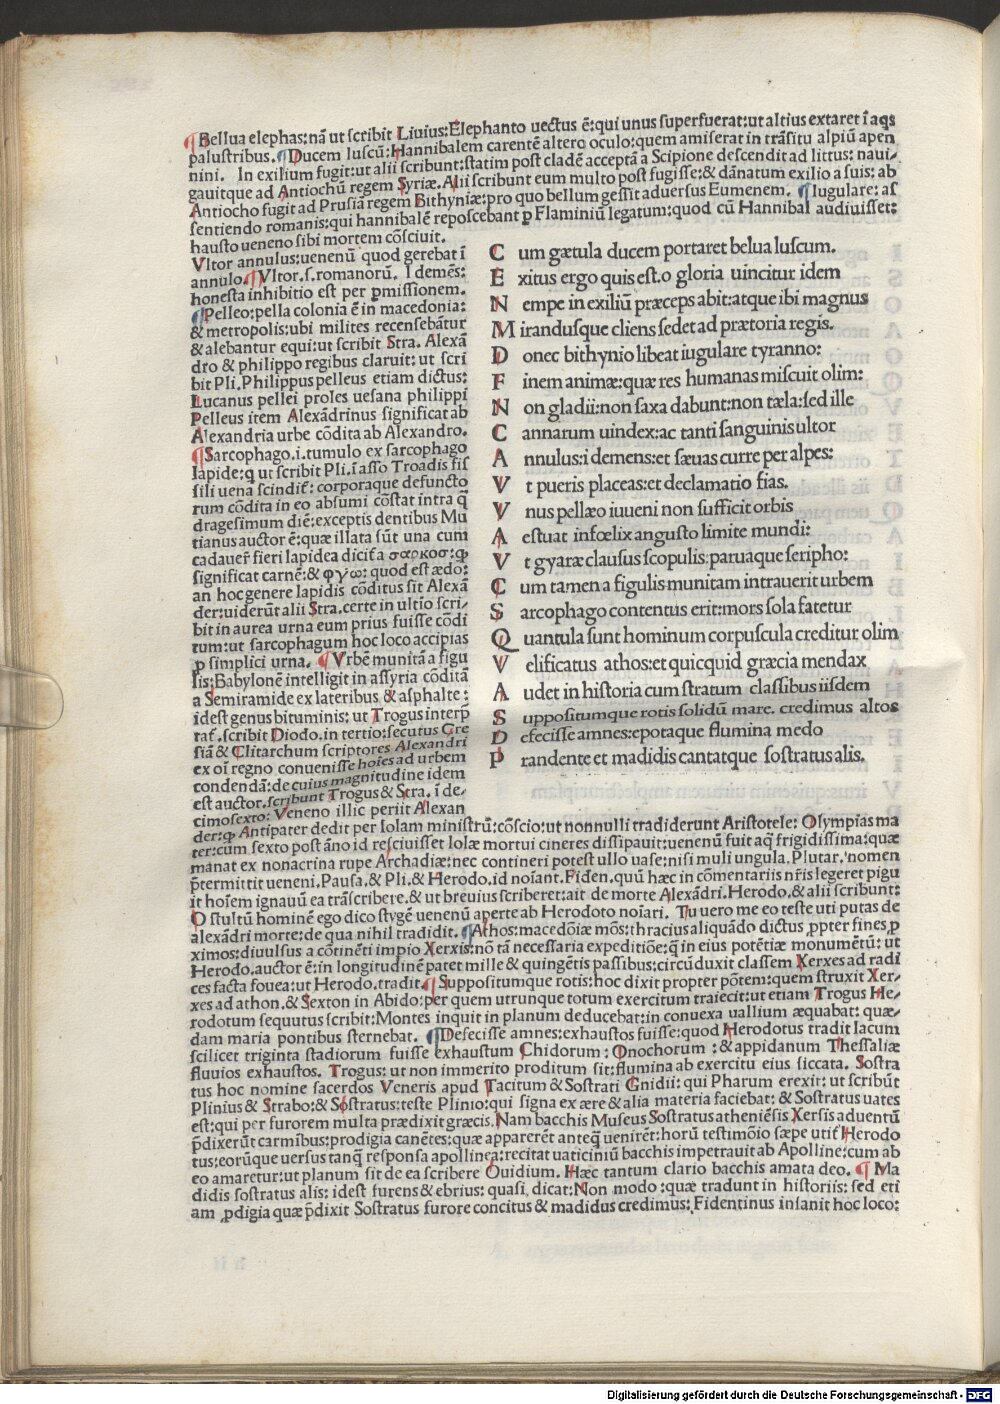 ¶Bellua elephas:nã ut ſcribit Liuius:Elephanto uectus ẽ:qui unus ſuperfuerat:ut altius extaret ĩ aqs
paluſtribus.¶Ducem luſcũ:Hannibalem carentẽ altero oculo:quem amiſerat in trãſitu alpiũ apen
nini.   In exilium fugit:ut alii ſcribunt:ſtatim poſt cladẽ acceptã a Scipione deſcendit ad littus: naui/
gauitque ad Antiochũ regem Syriæ.Alii ſcribunt eum multo poſt fugiſſe:& dãnatum exilio a ſuis: ab
Antiocho fugit ad Pruſiã regem Bithyniæ:pro quo bellum geſſit aduerſus Eumenem. ¶Iugulare: aſ
ſentiendo romanis:qui hannibalẽ repoſcebant ꝑ Flaminiũ legatum:quod cũ Hannibal audiuiſſet:
hauſto ueneno ſibi mortem cõſciuit.
Vltor annulus:uenenũ quod gerebat ĩ
annulo.¶Vltor.ſ.romanorũ. I demẽs:
honeſta inhibitio eſt per ꝑmiſſionem.
¶Pelleo:pella colonia ẽ in macedonia:
& metropolis:ubi milites recenſebãtur
& alebantur equi:ut ſcribit Stra. Alexã
dro & philippo regibus claruit: ut ſcri
bit Pli.Philippus pelleus etiam dictus:
Lucanus pellei proles ueſana philippi
Pelleus item Alexãdrinus ſignificat ab
Alexandria urbe cõdita ab Alexandro.
¶Sarcophago.i.tumulo ex ſarcophago
lapide:q ut ſcribit Pli.ĩ aſſo Troadis fiſ
ſili uena ſcindiť: corporaque defuncto
rum cõdita in eo abſumi cõſtat intra q̃
drageſimum diẽ:exceptis dentibus Mu
tianus auctor ẽ:quæ illata ſũt una cum
cadaueř fieri lapidea diciťa σαρκοσ:ꝙ
ſignificat carnẽ:& φγω: quod eſt ædo:
an hoc genere lapidis cõditus ſit Alexã
der:uiderũt alii Stra.certe in ultio ſcri/
bit in aurea urna eum prius fuiſſe cõdi
tum:ut ſarcophagum hoc loco accipias
ꝓ ſimplici urna. ¶Vrbẽ munitã a figu
lis:Babylonẽ intelligit in aſſyria cõditã
a Semiramide ex lateribus & aſphalte:
ideſt genus bituminis: ut Trogus interp̃
tať.ſcribit Diodo.in tertio:ſecutus Cte
ſiã & Clitarchum ſcriptores Alexandri
ex oĩ regno conueniſſe hoĩes ad urbem
condendã: de cuius magnitudine idem
eſt auctor.ſcribunt Trogus & Stra. ĩ de/
cimoſexto: Veneno illic periit Alexan
C um gætula ducem portaret belua luſcum.
E xitus ergo quis eſt.o gloria uincitur idem
N empe in exiliũ præceps abit:atque ibi magnus
M irandusque cliens ſedet ad prætoria regis.
D onec bithynio libeat iugulare tyranno:
F inem animæ:quæ res humanas miſcuit olim:
N on gladii:non ſaxa dabunt:non tæla:ſed ille
C annarum uindex:ac tanti ſanguinis ultor
A nnulus:i demens:et ſæuas curre per alpes:
V t pueris placeas:et declamatio fias.
V nus pellæo iuueni non ſufficit orbis
A eſtuat infœlix anguſto limite mundi:
V t gyaræ clauſus ſcopulis:paruaque ſeripho:
C um tamen a figulis munitam intrauerit urbem
S arcophago contentus erit:mors ſola fatetur
Q uantula ſunt hominum corpuſcula creditur olim
V elificatus athos:et quicquid græcia mendax
A udet in hiſtoria cum ſtratum claſſibus iiſdem
S uppoſitumque rotis ſolidũ mare. credimus altos
D efeciſſe amnes:epotaque flumina medo
P randente et madidis cantatque ſoſtratus alis.
der:ꝙ Antipater dedit per Iolam miniſtrũ:cõſcio:ut nonnulli tradiderunt Ariſtotele: Olympias ma
ter:cum ſexto poſt ãno id reſciuiſſet Iolæ mortui cineres diſſipauit:uenenũ fuit aq̃ frigidiſſima:quæ
manat ex nonacrina rupe Archadiæ:nec contineri poteſt ullo uaſe:niſi muli ungula.Plutar.nomen
p̃termittit ueneni.Pauſa.& Pli.& Herodo.id noĩant.Fiden.quũ hæc in cõmentariis nr̃is legeret pigu
it hoĩem ignauũ ea trãſcribere.& ut breuius ſcriberet:ait de morte Alexãdri.Herodo.& alii ſcribunt:
O ſtultũ hominẽ ego dico ſtygẽ uenenũ aperte ab Herodoto noĩari. Tu uero me eo teſte uti putas de
alexãdri morte:de qua nihil tradidit.¶Athos:macedõiæ mõs:thracius aliquãdo dictus ꝓpter fines ꝓ
ximos:diuulſus a cõtinẽti impio Xerxis:nõ tã neceſſaria expeditiõe:q̃ in eius potẽtiæ monumẽtũ: ut
Herodo.auctor ẽ:in longitudinẽ patet mille & quingẽtis paſſibus:circũduxit claſſem Xerxes ad radi
ces facta fouea:ut Herodo.tradit.¶Suppoſitumque rotis:hoc dixit propter põtem:quem ſtruxit Xer/
xes ad athon.& Sexton in Abido:per quem utrunque totum exercitum traiecit:ut etiam Trogus He/
rodotum ſequutus ſcribit:Montes inquit in planum deducebat:in conuexa uallium æquabat: quæ/
dam maria pontibus ſternebat. ¶Defeciſſe amnes:exhauſtos fuiſſe:quod Herodotus tradit lacum
ſcilicet triginta ſtadiorum fuiſſe exhauſtum Chidorum: Onochorum :& appidanum Theſſaliæ
fluuios exhauſtos. Trogus: ut non immerito proditum ſit:flumina ab exercitu eius ſiccata. Soſtra
tus hoc nomine ſacerdos Veneris apud Tacitum & Soſtrati Gnidii: qui Pharum erexit: ut ſcribũt
Plinius & Strabo:& Soſtratus:teſte Plinio:qui ſigna ex ære & alia materia faciebat: & Soſtratus uates
eſt:qui per furorem multa prædixit græcis.Nam bacchis Muſeus Soſtratus atheniẽſis Xerſis aduentũ
p̃dixerũt carmĩbus:prodigia canẽtes:quæ apparerẽt anteq̃ uenirẽt:horũ teſtimõio ſæpe utiť Herodo
tus:eorũque uerſus tanq̃ reſponſa apollinea:recitat uaticiniũ bacchis impetrauit ab Apolline:cum ab
eo amaretur:ut planum ſit de ea ſcribere Ouidium. Hæc tantum clario bacchis amata deo. ¶ Ma
didis ſoſtratus alis: ideſt furens & ebrius: quaſi dicat:Non modo :quæ tradunt in hiſtoriis: ſed eti
am ꝓdigia quæ p̃dixit Soſtratus furore concitus & madidus credimus: Fidentinus inſanit hoc loco:
Digitalisierung gefördert durch die Deutsche Forschungsgemeinschaft - DFG